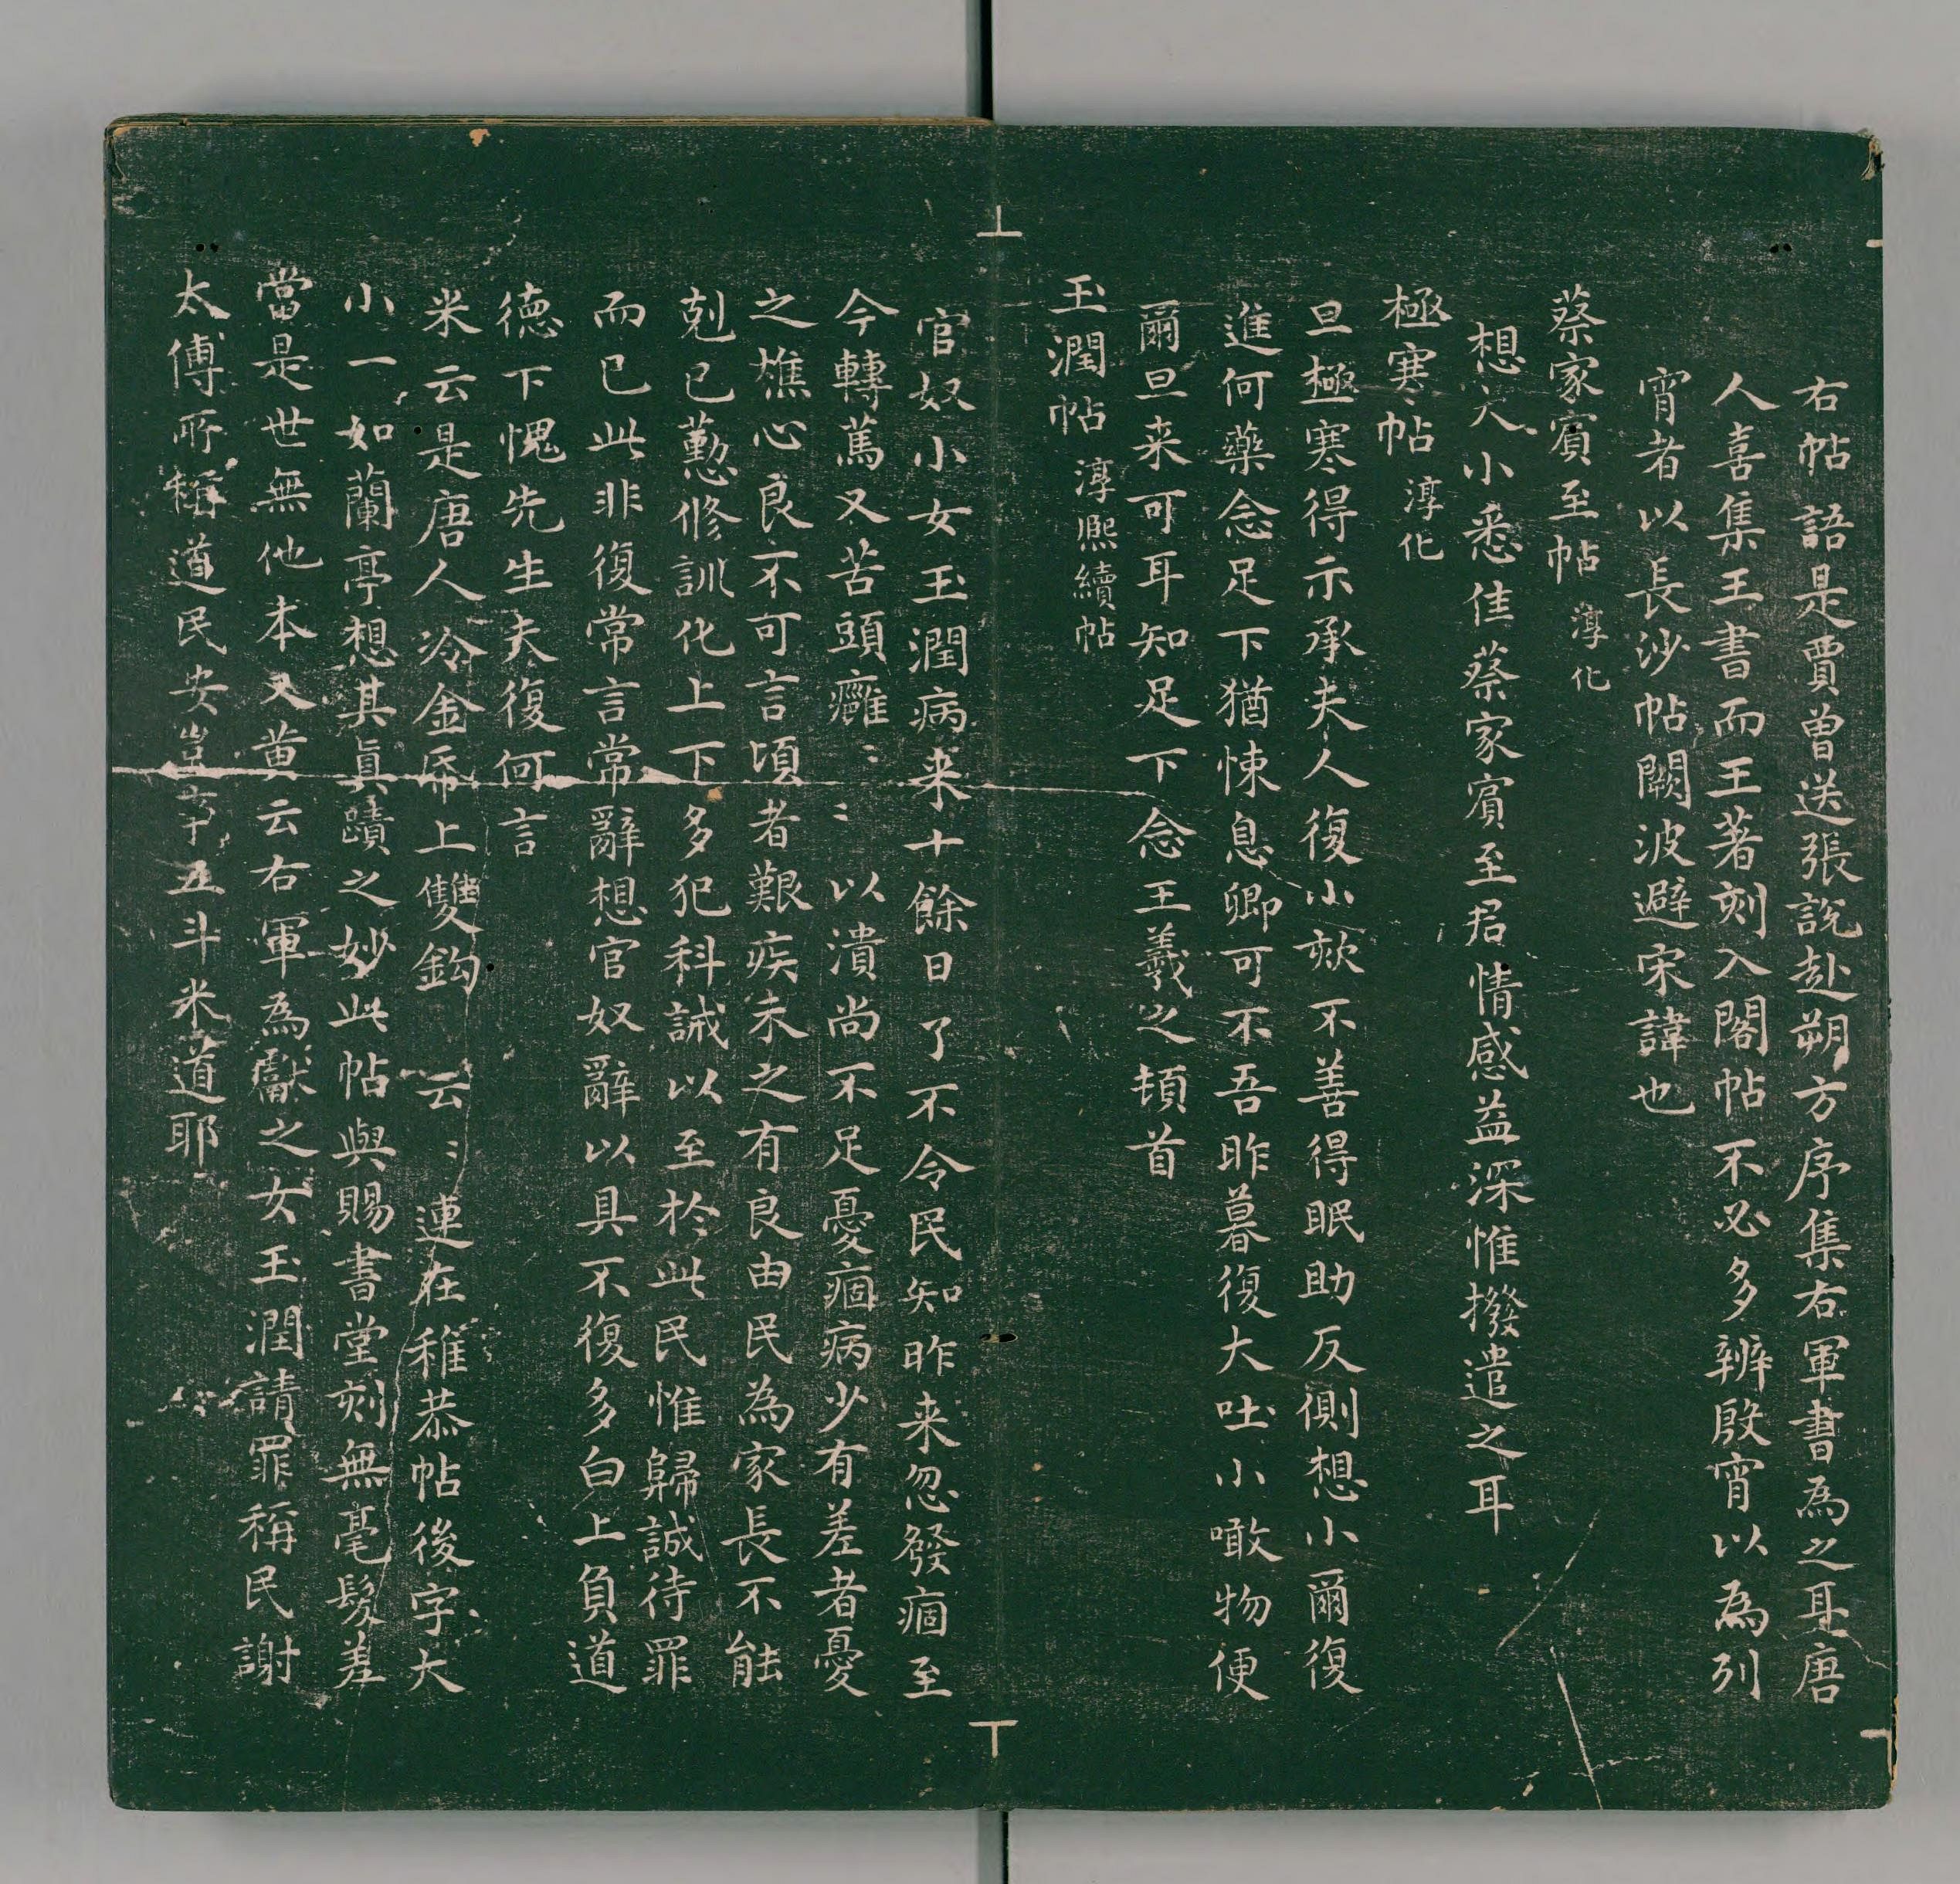 右帖語是賈曾送張說赴朔方序集右軍書為之耳唐
人喜集王書而王著刻入閣帖不必多辨殷宵以為列
宵者以長沙帖闕波避宋諱也
蔡家賓至帖 淳化
想大小悉佳蔡家賓至君情感益深惟撥遣之耳
極寒帖 淳化
旦極寒得示承夫人復小欬不善得眠助反側想小爾復
進何藥念足下猶悚息卿可不吾昨暮復大吐小噉物便
爾旦来可耳知足下念王羲之頓首
玉潤帖 淳熈續帖
官奴小女玉潤病来十餘日了不令民知昨来忽發痼至
今轉篤又苦頭癰〻〻以潰尚不足憂痼病少有差者憂
之燋心良不可言頃者艱疾未之有良由民為家長不能
剋已懃修訓化上下多犯科誡以至於此民惟歸誠待罪
而已此非復常言常辭想官奴辭以具不復多白上負道
德下愧先生夫復何言
米云是唐人冷金帋上雙鈎 云〻連在稚恭帖後字大
小一如蘭亭想其真蹟之妙此帖與賜書堂刻無毫髮差
當是世無他本又黄云右軍為獻之女玉潤請罪稱民謝
太傅所稱道民安豈事五斗米道耶